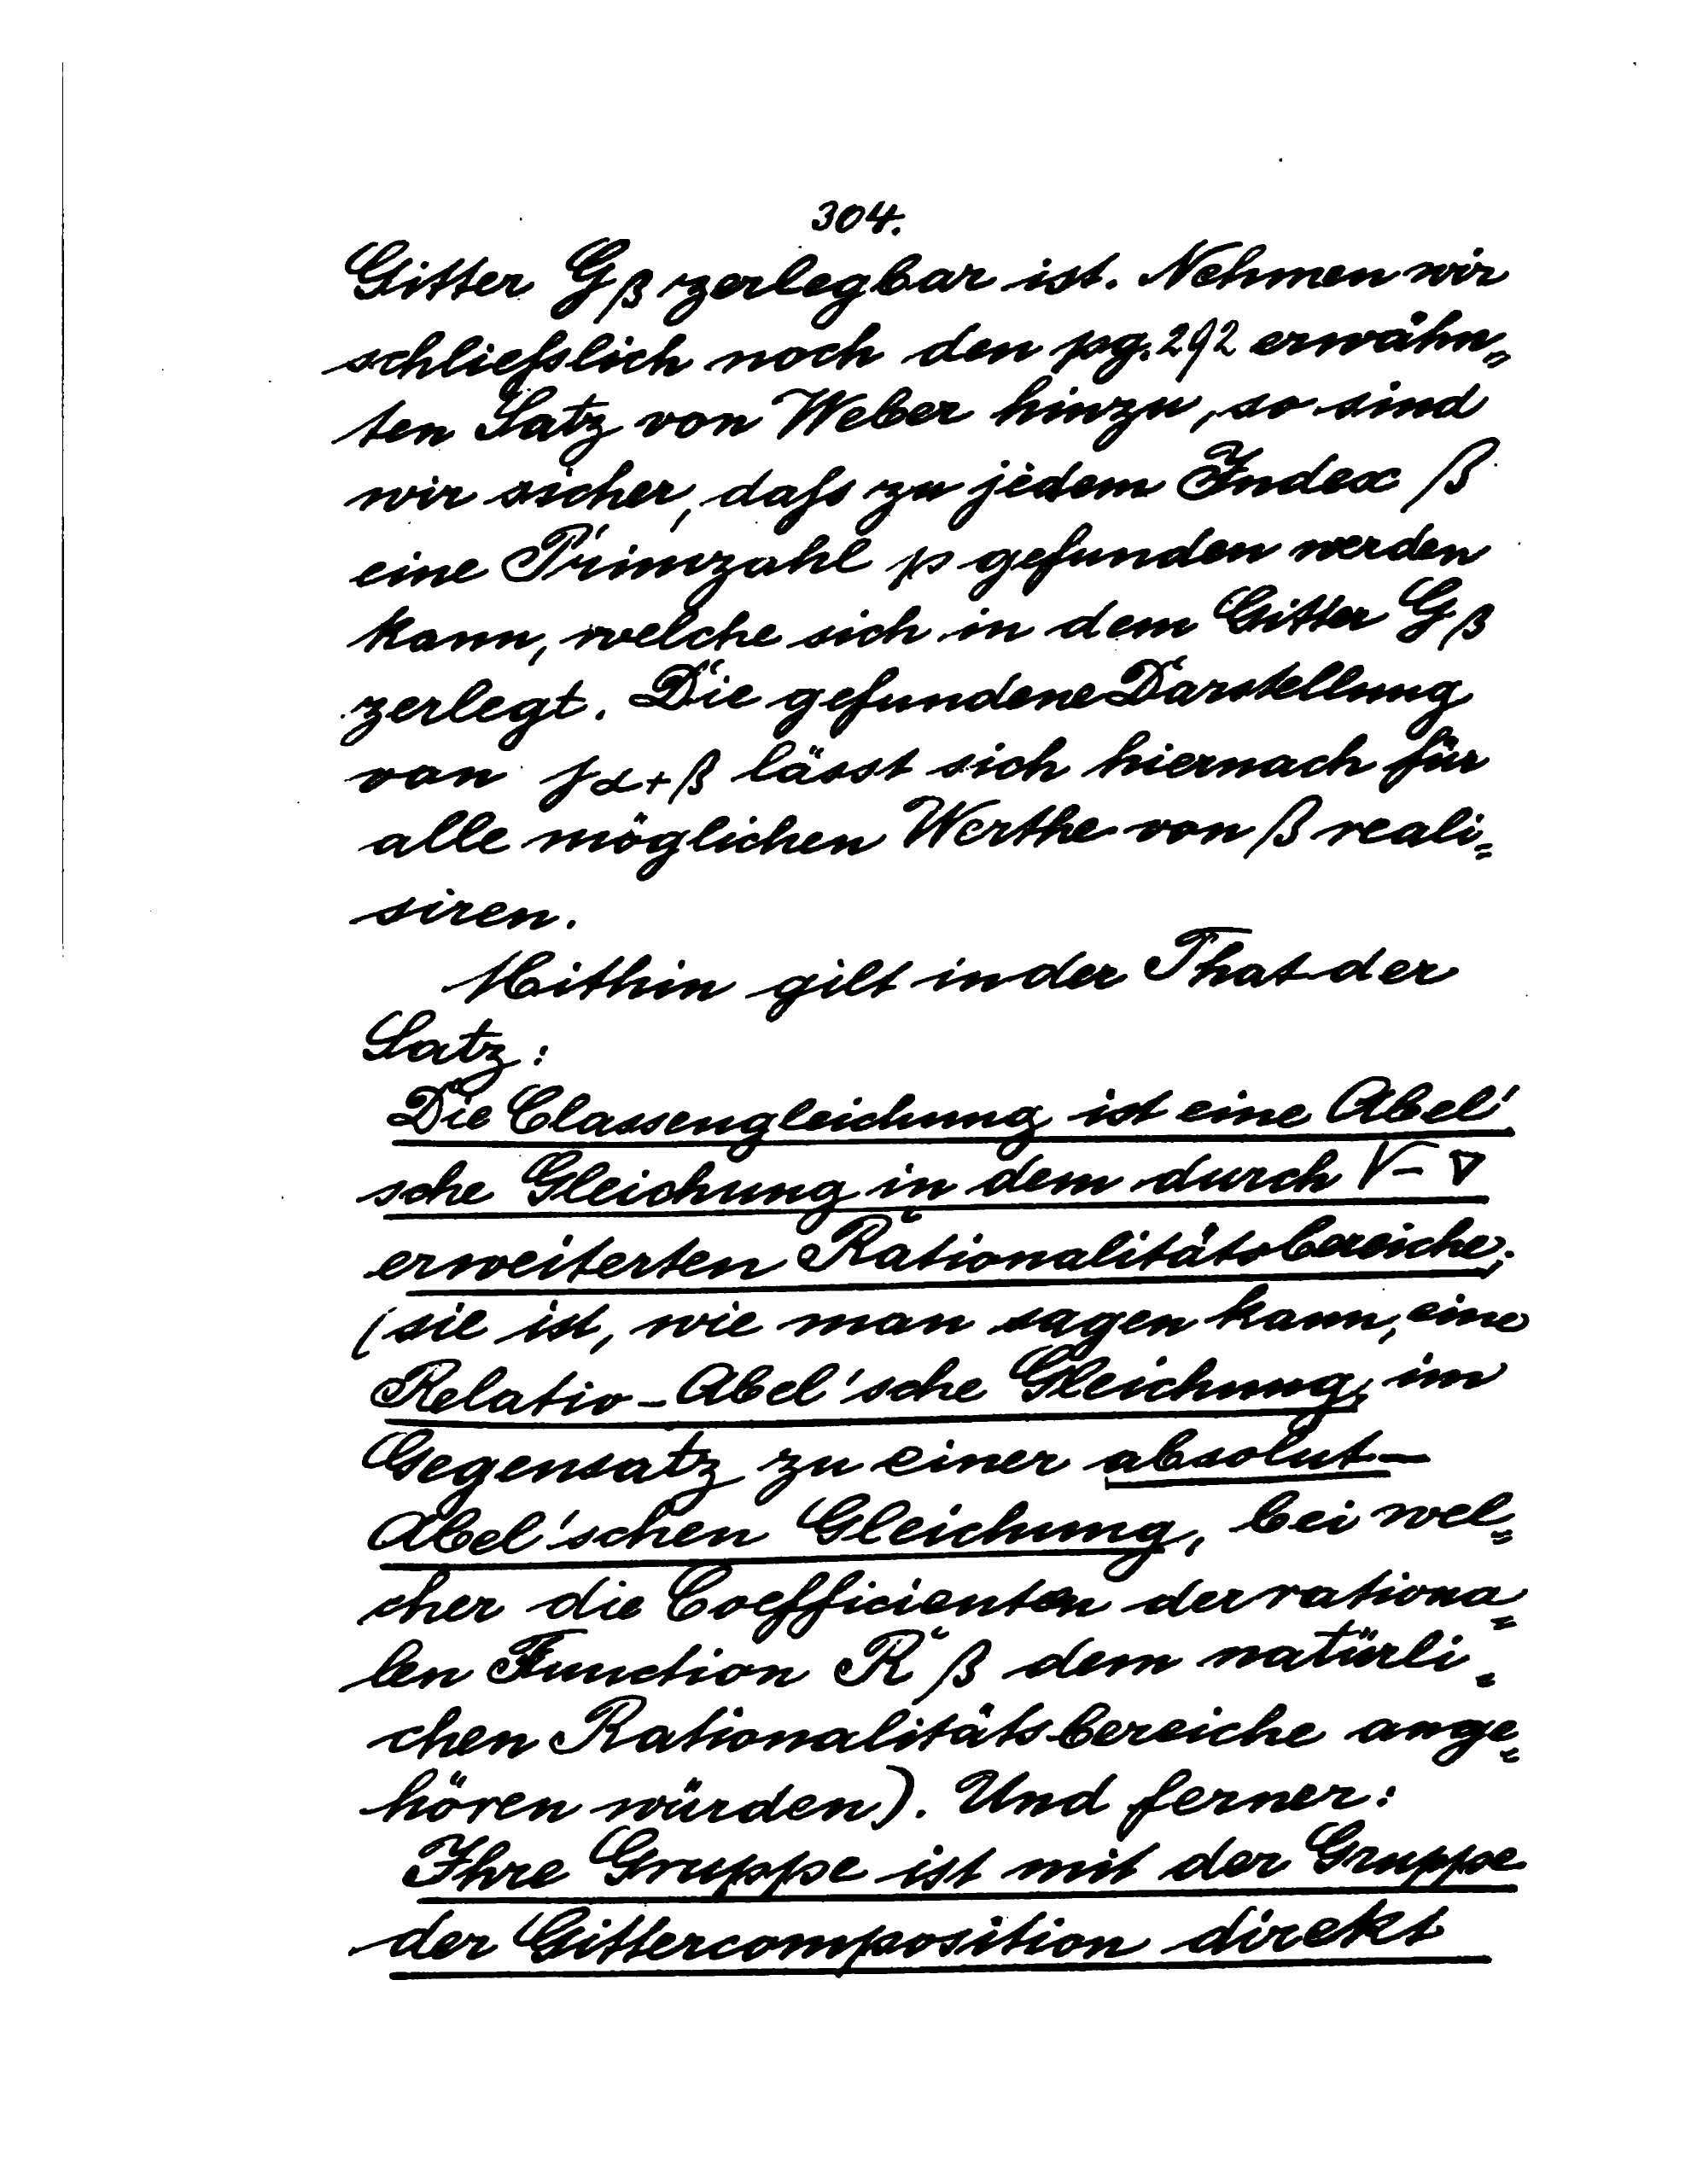 304.
Gitter Gβ zerlegbar ist. Nehmen wir
schließlich noch den pg. 292 erwähn=
ten Satz von Weber hinzu, so sind
wir sicher, daß zu jedem Index β
eine Primzahl p gefunden werden
kann, welche sich in dem Gitter Gβ
zerlegt. Die gefundene Darstellung
von jα+β lässt sich hiernach für
alle möglichen Werthe von β reali=
siren.
Mithin gilt in der That der
Satz:
Die Classengleichung ist eine Abel'
sche Gleichung in dem durch √-∇
erweiterten Rationalitätsbereiche;
(sie ist, wie man sagen kann, eine
Relativ-Abel'sche Gleichung, im
Gegensatz zu einer absolut-
Abel'schen Gleichung, bei wel=
cher die Coefficienten der rationa=
len Function Rβ dem natürli=
chen Rationalitätsbereiche ange=
hören würden). Und ferner:
Ihre Gruppe ist mit der Gruppe
der Gittercomposition direkt